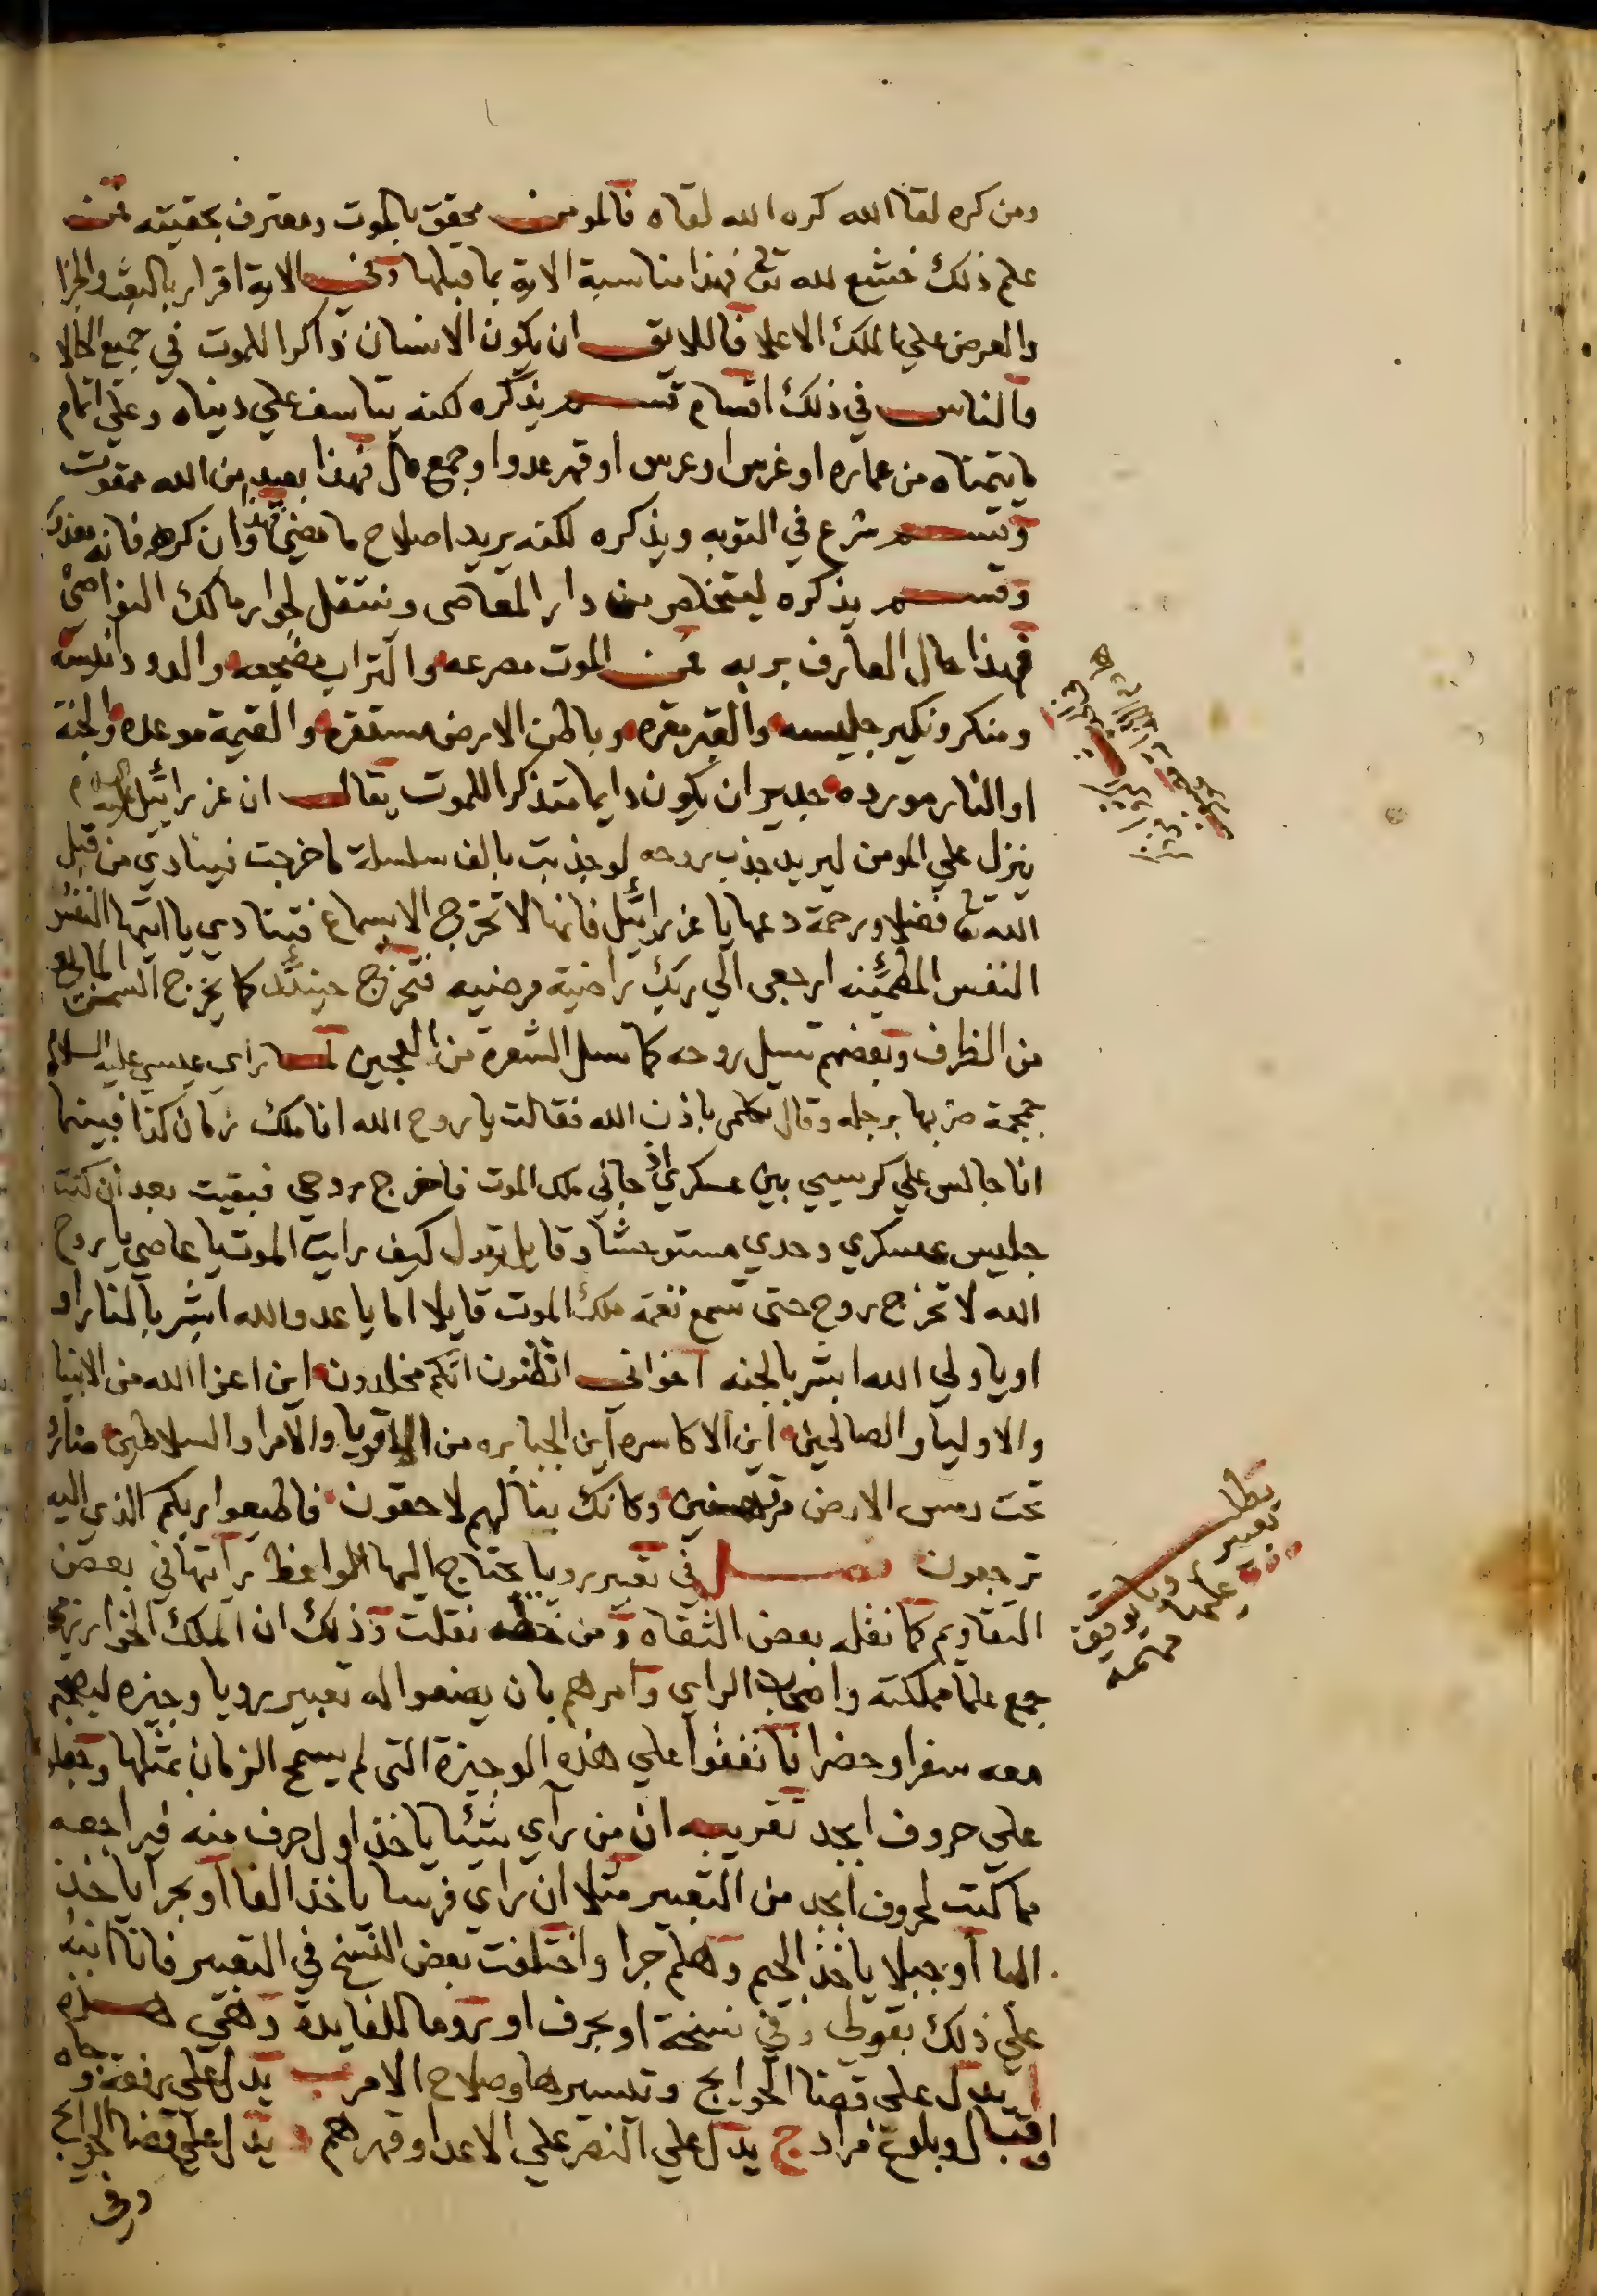 ومن كره لقا الله كره الله لقاه فالمومن محقق بالموت ومعترف بحقيته فمن
علم ذلك خشع لله تع فهذا مناسبة الاية بما قبلها وفي الاية اقرار بالبعث والجزا
والعرض علي الملك الاعلا فاللايق ان يكون الانسان ذاكرا للموت في جميع الحالا
والناس في ذلك اقسام قسم يذكره لكنه يتاسف علي دنياه وعلي اتمام
ما يتمناه من عماره او غرس او عرس او قهر عدو او جمع مال فهذا بعيد من الله ممقوت
وقسم شرع في التوبه ويذكره لكنه يريد اصلاح ما مضي فهذا وان كرهه فانه معذور
وقسم يذكره ليتخلص من دار المعاصى وينتقل لجوار مالك النواصي
فهذا حال العارف بربه فمن الموت مصرعه والتراب مضجعه والدود انيسه
ومنكر ونكير جليسه والقبر مقره وباطن الارض مستقره والقيمة موعده والجنة
او النار مورده جدير ان يكون دايما متذكرا للموت يقال ان عزرائيل عليه السلام
ينزل علي المومن ليريد جذب روحه لو جذبت بالف سلسلة ما خرجت فينادي من قبل
الله تع فضلا ورحمة دعها يا عزرائيل فانها لا تخرج الا بسماع فينادي يا ايتها النفس
النفس المطمئنه ارجعى الي ربك راضية مرضيه فتخرج حينئذ كما يخرج السمن المايع
من الظرف وبعضهم تسيل روحه كما تسل الشعرة من العجين لما راي عيسي عليه السلام
جمجمة ضربها برجله وقال تكلمى باذن الله فقالت يا روح الله انا ملك زمان كذا فبينما
انا جالس علي كرسيي بين عسكري اذ جاني ملك الموت فاخرج روحي فبقيت بعد ان كنت
جليس عسكري وحدي مستوحشا وقايل يقول كيف رايت الموت يا عاصي يا روح
الله لا تخرج روح حتى تسمع نغمة ملك الموت قايلا اما يا عدو الله ابشر بالنار او
او يا ولي الله ابشر بالجنه اخواني اتظنون انكم مخلدون اين اعزا الله من الانبيا
والاوليا والصالحين اين الاكاسره اين الجبابره من الاقويا والامرا والسلاطين صاروا
تحت رمس الارض مرتهنين وكانك بنا لهم لاحقون فاطيعوا ربكم الذي اليه
ترجعون فصل في تعبير رويا يحتاج اليها الواعظ رايتها في بعض
التقاويم كما نقله بعض الثقاه ومن خطه نقلت وذلك ان الملك الخوارزمى
جمع علما مملكته واصحاب الراي وامرهم بان يضعوا له تعبير رويا وجيزه ليصحبه
معه سفرا وحضرا فاتفقوا علي هذه الوجيزة التى لم يسمح الزمان بمثلها وجعلو
علي حروف ابجد تقريبه ان من راي شئيا ياخذ اول حرف منه فيراجعه
مما كتب لحروف ابجد من التعبير مثلا ان راى فرسا ياخذ الفا او بحرا ياخذ
البا او جبلا ياخذ الجيم وهلم جرا واختلفت بعض النسخ في التعبير فانا انبه
علي ذلك بقولى وفي نسخة او بحرف او روما للفايدة وهي هذه
ا يدل علي قضا الحوايج وتيسيرها وصلاح الامر ب يدل علي رفعة وجاه
واقبال وبلوغ مراد ج يدل علي النصر علي الاعدا وقهرهم د يدل علي قضا الحوايج
وفى
مطلب
تعبير
مهمه